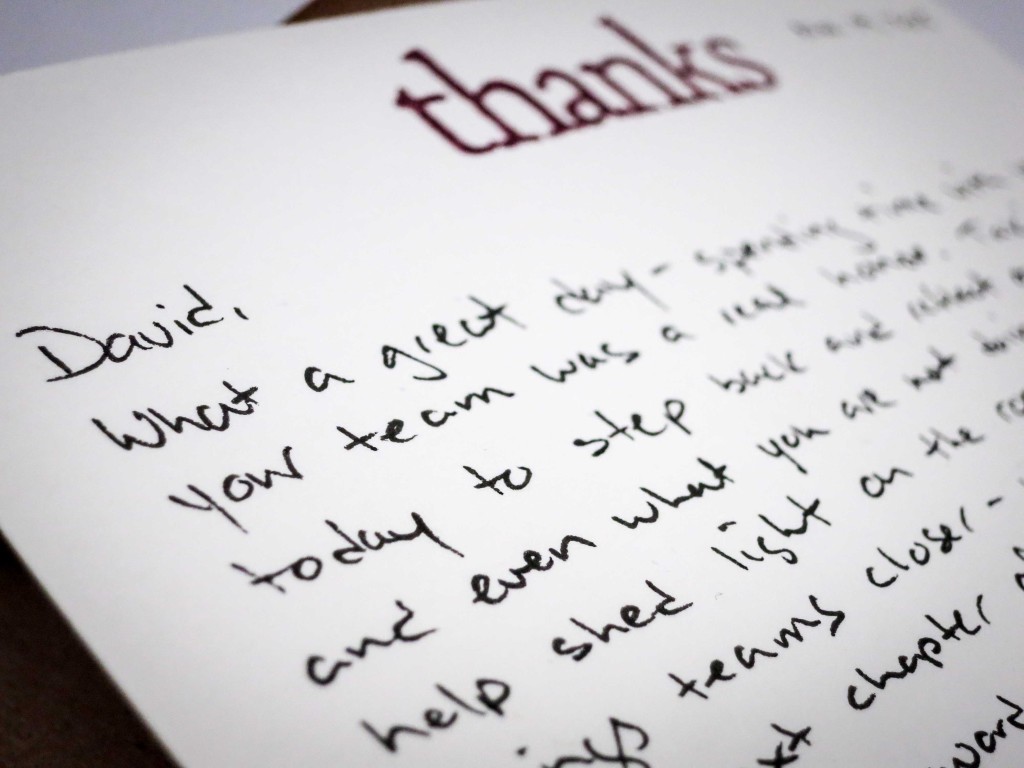 thanks
David,
What a great day - spending time with
your team was a real honor.
today to step back and
and even what you are not
help shed light on the
teams closer -
chapter